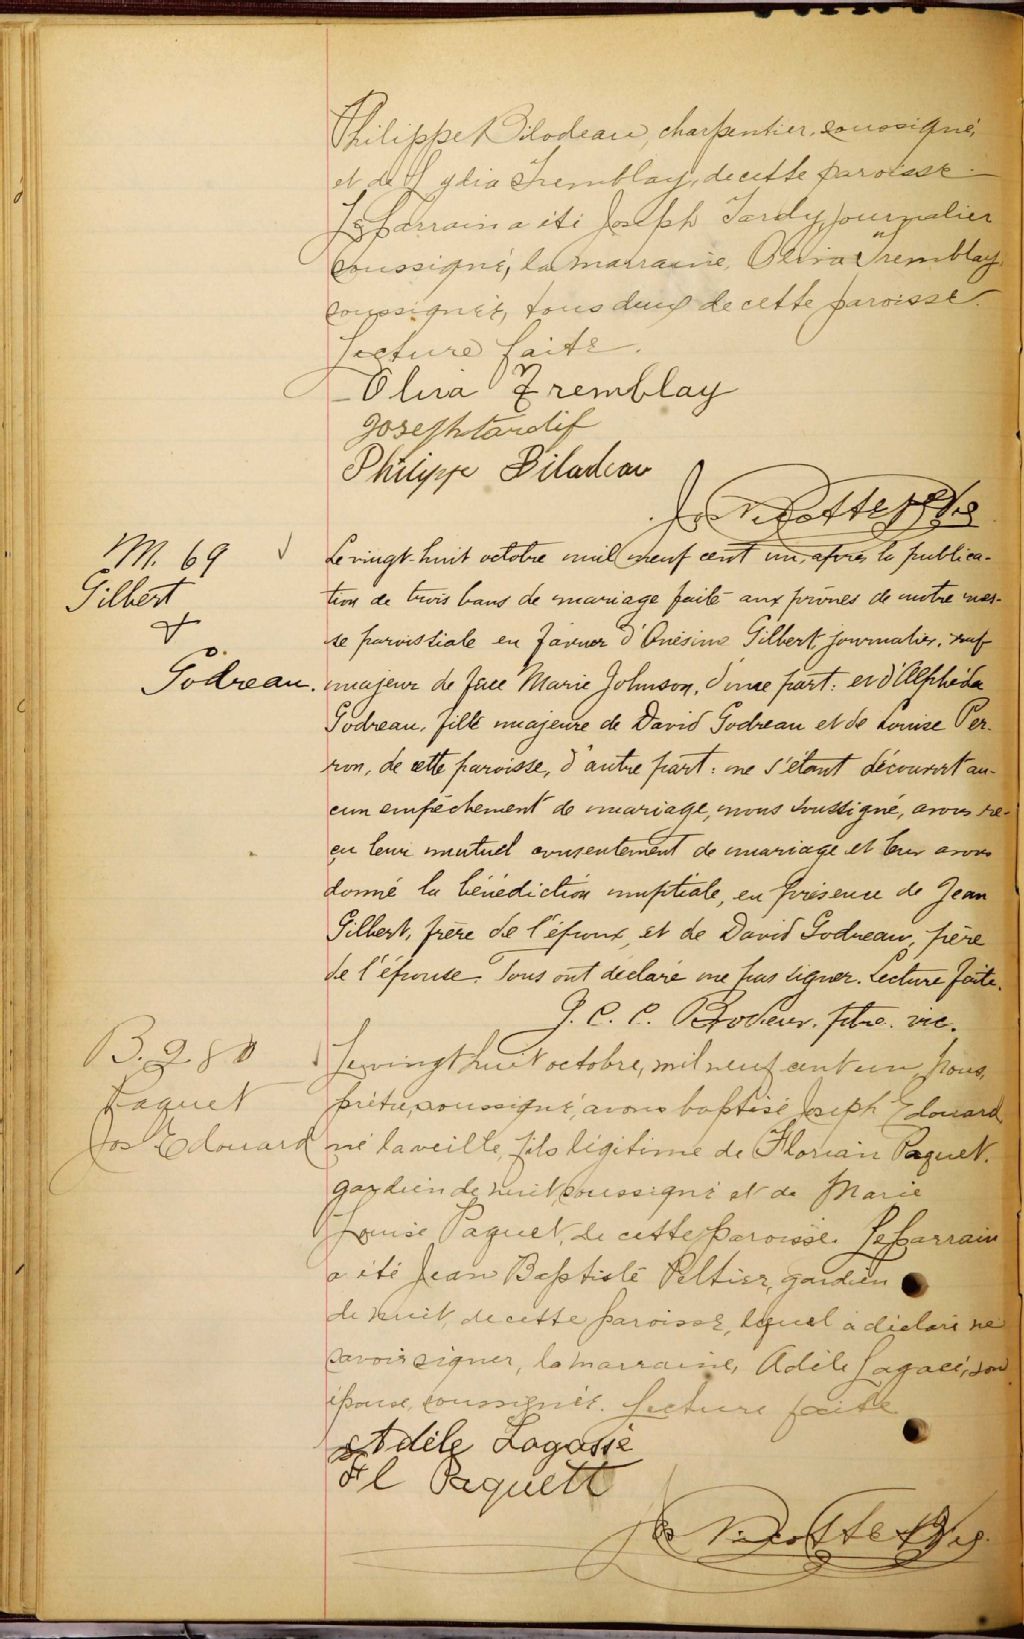 Philippe Bilodeau, charpentier, soussigné,
et de Lydia Tremblay, de cette paroisse.
Le parrain a été Joseph Tardy, journalier
soussigné, la marraine, Oliva Tremblay,
soussignée, tous deux de cette paroisse.
Lecture faite.
Oliva Tremblay
Joseph tardif
Philippe Biladeau
Jos Nicotte
M. 69
Gilbert
+
Godreau.
Le vingt-huit octobre mil neuf cent un, après la publica-
tion de trois bans de mariage faite aux prônes de notre mes-
se paroissiale en faveur d'Onésime Gilbert, journalier, veuf
majeur de feue Marie Johnson, d'une part: et d'Alphéda
Godreau, fille majeure de David Godreau et de Louise Per-
ron, de cette paroisse, d'autre part: ne s'étant découvert au-
cun empêchement de mariage, nous soussigné, avons re-
çu leur mutuel consentement de mariage et leur avons
donné la bénédiction nuptiale, en présence de Jean
Gilbert, frère de l'époux, et de David Godreau, père
de l'épouse. Tous ont déclaré ne pas signer. Lecture faite.
J. C. C. Brodeur, ptre. vic.
B. 280
Paquet
Jos Edouard
Le vingt huit octobre, mil neuf cent un, nous,
prêtre, soussigné, avons baptisé Joseph Edouard,
né la veille, fils légitime de Florian Paquet,
gardien de nuit, soussigné et de Marie
Louise Paquet, de cette paroisse. Le parrain
a été Jean Baptiste Peltier, gardien
de nuit, de cette paroisse, lequel a déclaré ne
savoir signer, la marraine, Adèle Lagacé, son
épouse, soussignée. Lecture faite
Adèle Lagassé
Fl Paquett
Jos Nicotte